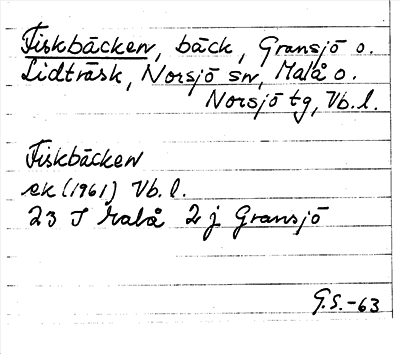 Fiskbäcken, bäck, Gransjö o.
Lidträsk, Norsjö sn, Malå o.
Norsjö tg, Vb. l.
Fiskbäcken
ek (1961) Vb. l.
23 J Malå 2 j Gransjö
G.S.-63